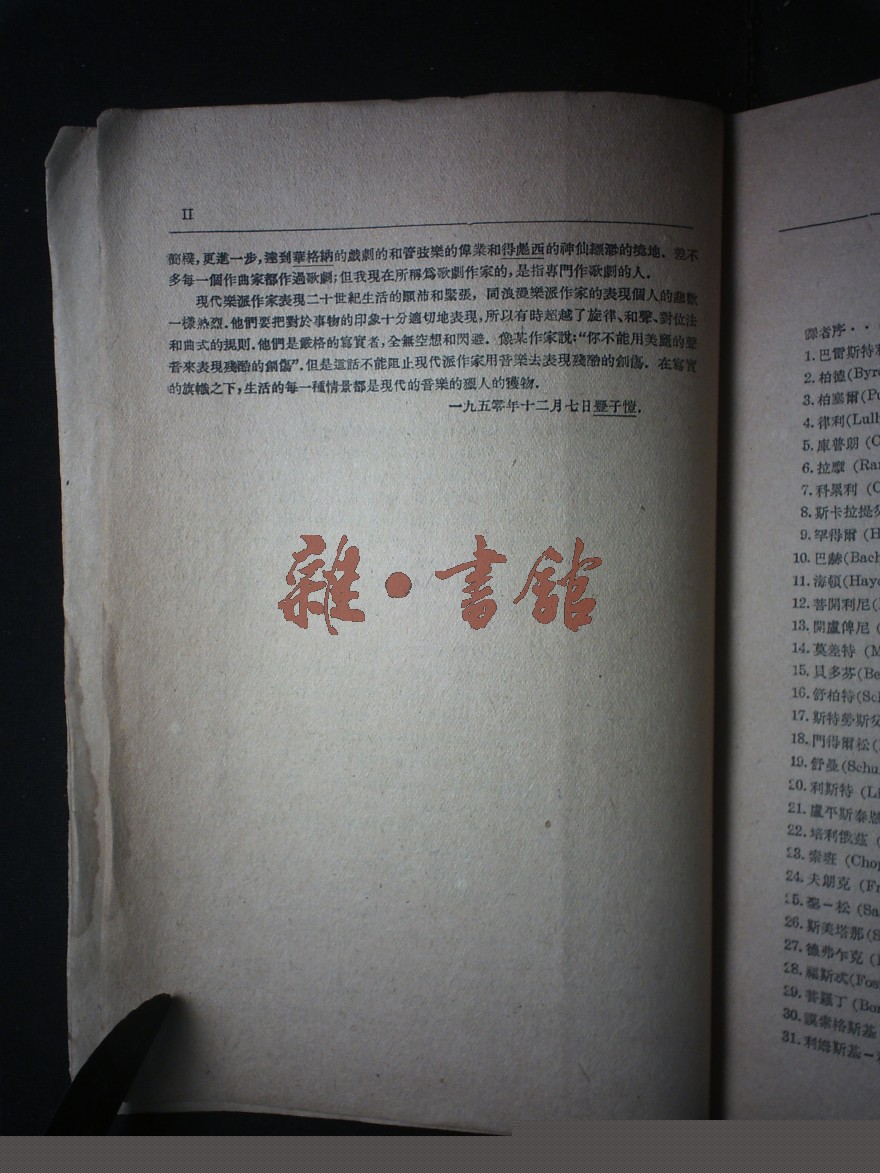 II
更進一步,達到華格納的戲劇的和管弦樂的偉業和得彪西的神仙縹渺的境地、差不
多每一個作曲家都作過歌劇;但我現在所稱爲歌劇作家的,是指專門作歌劇的人.
現代樂派作家表現二十世紀生活的顚沛和緊張,同浪漫樂派作家的表現個人的悲歡
一樣熱烈.他們要把對於事物的印象十分適切地表現,所以有時超越了旋律、和聲、對位法
和曲式的規則.他們是嚴格的寫實者,全無空想和閃避.像某作家說:“你不能用美麗的聲
音來表現殘酷的創傷”.但是這話不能阻止現代派作家用音樂去表現殘酷的創傷.在寫實
的旗幟之下,生活的每一種情景都是現代的音樂的獵人的獲物.
一九五零年十二月七日豐子愷.
雜·書館
譯者序··
1.巴雷斯特
2.柏德(Byr
3.柏塞爾(Pu
4.律利(Lull
5.庫普朗(C
6.拉摩(Ra
7.科累利(C
8.斯卡拉提
9.罕得爾(H
10.巴赫(Bach
11.海頓(Hayd
12.菩開利尼(
13.開盧俾尼(
14.莫差特(M
15.貝多芬(Be
16.舒柏特(Sch
17.斯特勞斯父
18.門得爾松(
19.舒曼(Schu
20.利斯特(Li
21.盧平斯泰
22.培利俄茲(
23.索班(Chop
24.夫朗克(Fr
25.聖-松(Sa
26.斯美塔那(S
27.德弗乍克(
28.福斯忒(Fos
29.菩羅丁(Bor
30.謨索格斯基
31.利姆斯基-